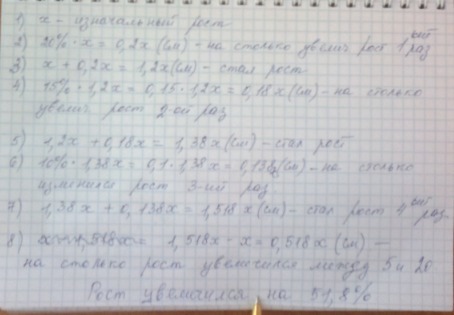 1) x - изначальный рост
2) 20% · x = 0,2x (см) - на столько увелич рост 1ый раз
3) x + 0,2x = 1,2x (см) - стал рост
4) 15% · 1,2x = 0,15 · 1,2x = 0,18x (см) - на столько
увелич. рост 2-ой раз
5) 1,2x + 0,18x = 1,38x (см) - стал рост
6) 10% · 1,38x = 0,1 · 1,38x = 0,138x (см) - на столько
изменился рост 3-ий раз
7) 1,38x + 0,138x = 1,518x (см) - стал рост 4ый раз
8) 1,518x - x = 0,518x (см) —
на столько рост увеличился между 5 и 20
Рост увеличился на 51,8%